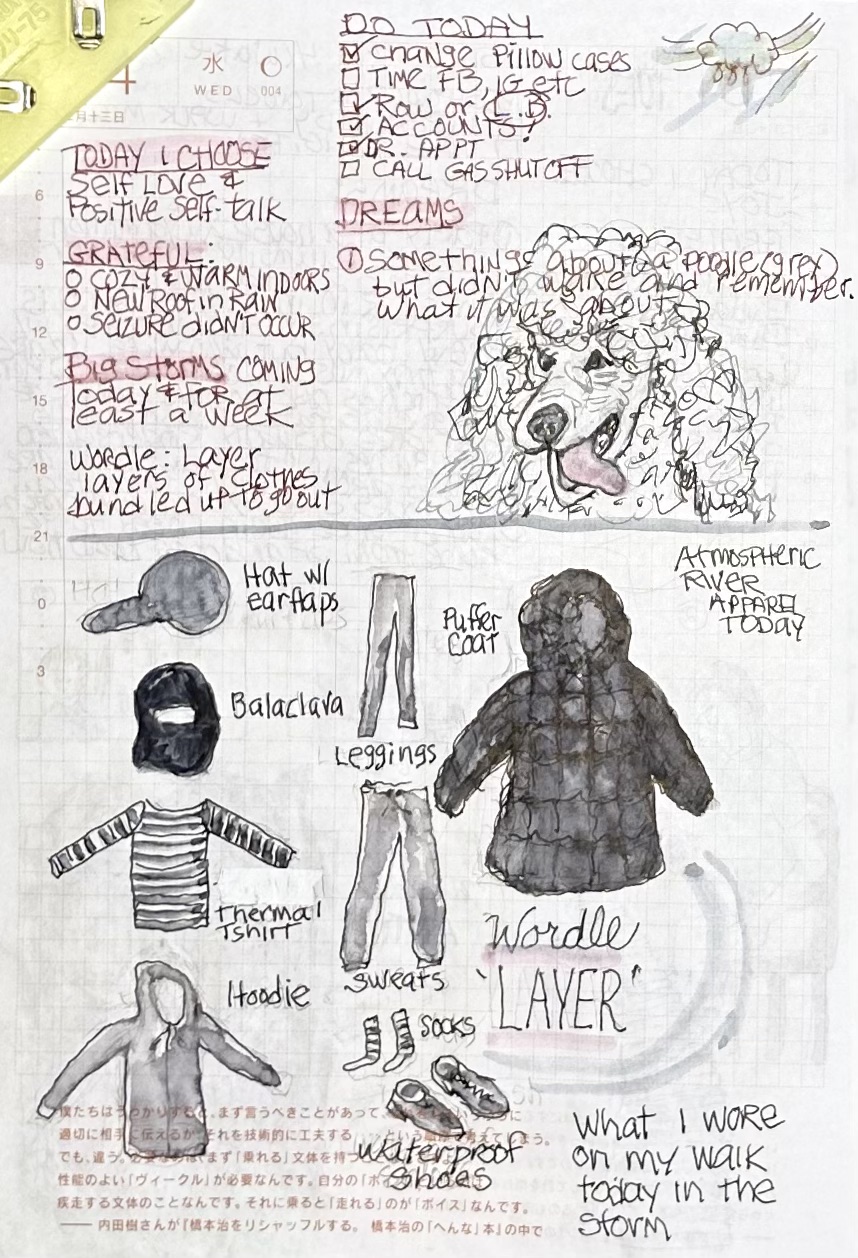 水
WED
004
月十三日
DO TODAY
CHANGE Pillow cases
TIME FB, IG etc
ROW or C.B.
ACCOUNTS?
DR. APPT
CALL GAS SHUTOFF
TODAY I CHOOSE
Self LOVE &
Positive Self-talk
GRATEFUL:
COZY & WARM INDOORS
NEW Roof in RAIN
SEIZURE DIDN'T OCCUR
Big STORMS COMING
Today & FOR at
least a week
Wordle: Layer
layers of clothes
bundled up to go out
DREAMS
① Somethings about a poodle (grey)
but didn't wake and remember.
what it was about
6
9
12
15
18
21
0
3
Hat w/
earflaps
Balaclava
Thermal
Tshirt
Hoodie
Leggings
Sweats
Socks
Waterproof
Shoes
Puffer
Coat
Atmospheric
River
APPAREL
TODAY
Wordle
"LAYER"
What I wore
on my walk
today in the
storm
僕たちはうっかりすると、まず言うべきことがあって、
適切に相手に伝えるか、それを技術的に工夫する という順番で考えてしまう。
でも、違う。必要なのは、まず「乗れる」文体を持つ
性能のよい「ヴィークル」が必要なんです。自分の「ボイス」
疾走する文体のことなんです。それに乗ると「走れる」のが「ボイス」なんです。
―― 内田樹さんが『橋本治をリシャッフルする。 橋本治の「へんな」本』の中で